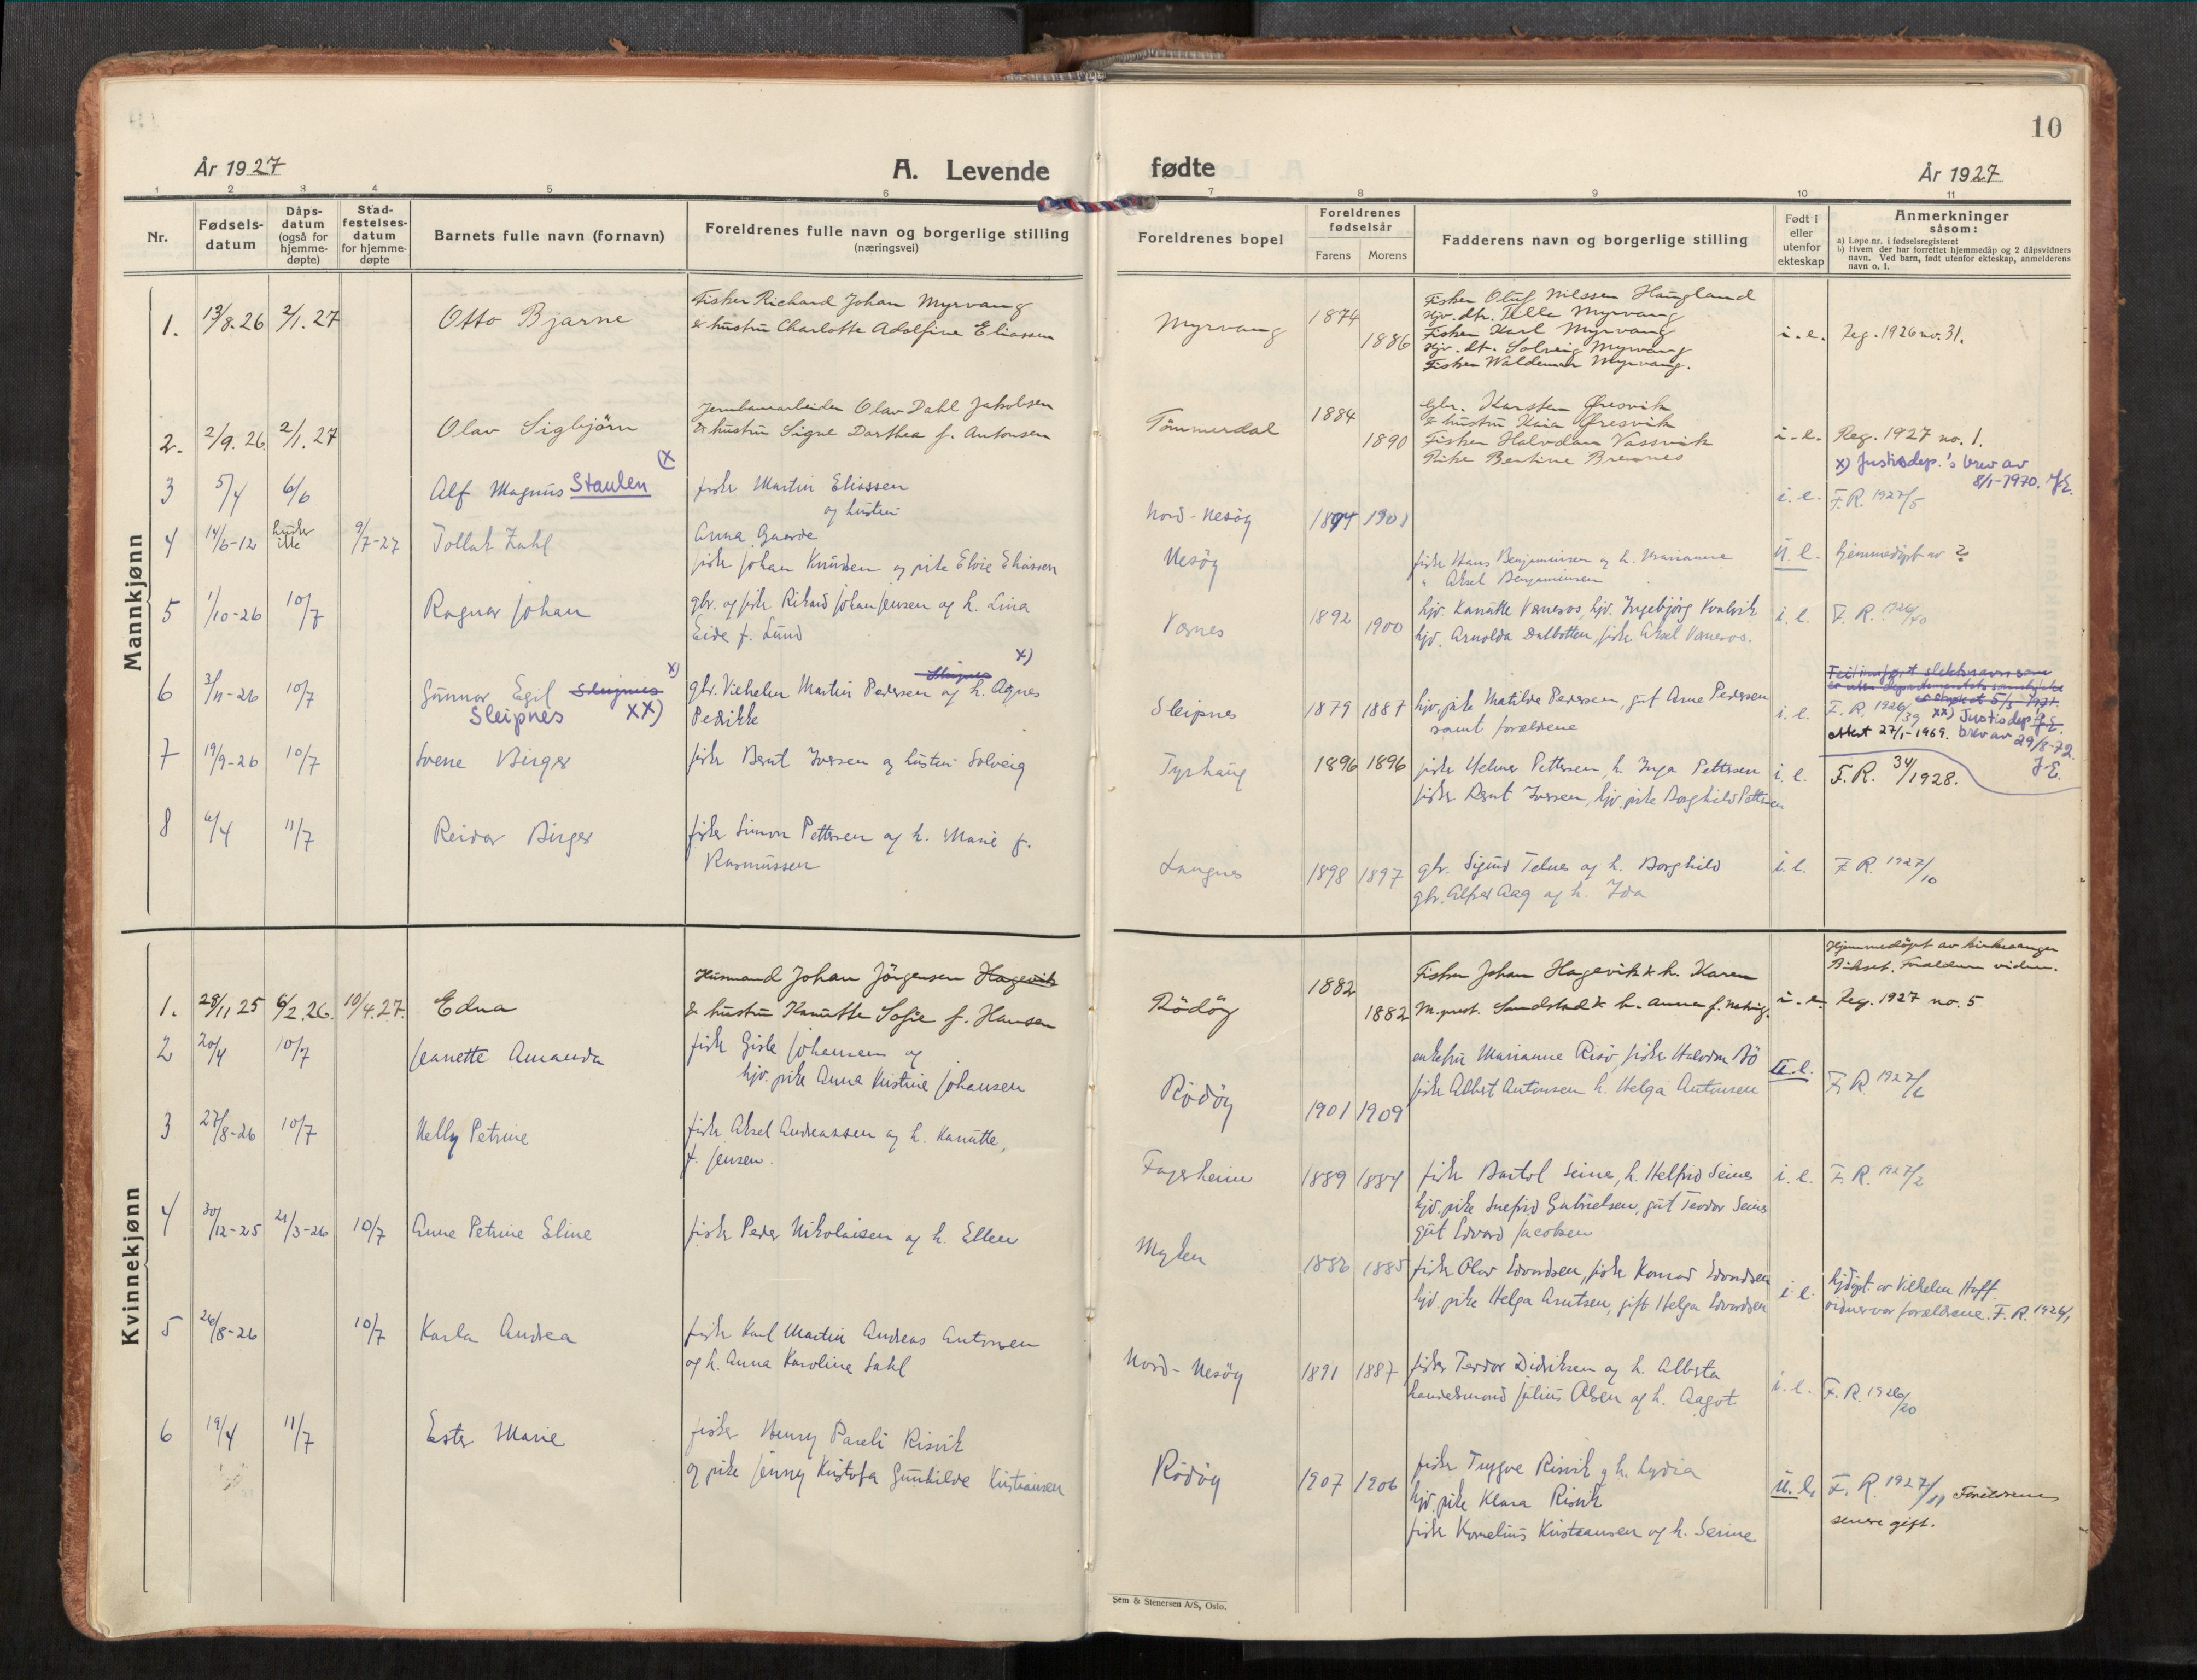 10
År 1927
A. Levende
fødte
År 1927
1 2 3 4 5 6 7 8 9 10 11
Nr.
Fødsels-
datum
Dåps-
datum
(også for
hjemme-
døpte)
Stad-
festelses-
datum
for hjemme-
døpte
Barnets fulle navn (fornavn)
Foreldrenes fulle navn og borgerlige stilling
(næringsvei)
Foreldrenes bopel
Foreldrenes
fødselsår
Farens
Morens
Fadderens navn og borgerlige stilling
Født i
eller
utenfor
ekteskap
Anmerkninger
såsom:
a) Løpe nr. i fødselsregisteret
b) Hvem der har forrettet hjemmedåp og 2 dåpsvidners
navn. Ved barn, født utenfor ekteskap, anmelderens
navn o. l.
Mannkjønn
1. 13/8.26 2/1.27 Otto Bjarne
Fisker Richard Johan Myrvang
& hustru Charlotte Adolfine Eliassen
Myrvang 1874 1886
Fisker Oluf Nilssen Haugland
Hjv. dtr. Myrvang
Fisker Karl Myrvang
Hjv. dtr. Solveig Myrvang
Fisker Waldemar Myrvang.
i.e. Reg. 1926 no. 31.
2. 2/9.26 2/1.27 Olav Sigbjörn
Jernbanearbeider Olav Dahl Jakobsen
& hustru Signe Dorthea f. Antonsen
Tömmerdal 1884 1890
Gbr. Karsten Øresvik
& hustru Kaia Øresvik
Fisker Halvdan Vassvik
Pike Bentine Bremnes
i.e. Reg. 1927 no. 1.
3 5/4 6/6 Alf Magnus Staulen (x
fisker Martin Eliassen
og hustru
Anna Gaarde
Nord-Nesöy 1894 1901
i.e.
x) Justisdep.'s brev av
8/1-1970. JE.
F.R. 1927/5
4 14/6-12 husker
ikke 9/7-27 Tollak Zahl
fisker Johan Knudsen og pike Elvie Eliassen
Nesöy
fisker Hans Benjaminsen og h. Marianne
" Aksel Benjaminsen
u.e. hjemmedöpt av ?
5 1/10-26 10/7 Ragnar Johan
gbr. og fisker Rikard Johan Jensen og h. Lina
Eide f. Lund
Værnes 1892 1900
hjv. Kanutte Værnesos, hjv. Ingebjörg Kvalvik
hjv. Arnolda Dalbotten, fisker Aksel Værnesos.
i.e. F.R. 1926/40
6 3/11-26 10/7 Gunnar Egil Sleipnes x)
Sleipnes xx)
gbr. Vilhelm Martin Pedersen og h. Agnes Sleipnes x)
Pedrikke
Sleipnes 1879 1887
hjv. pike Matilde Pedersen, gut Arne Pedersen
samt forældrene
i.e.
Feilinnført slektsnavn som
F.R. 1926/39 xx) Justisdep.
attest 27/1-1969. brev av 29/8-72.
JE.
7 19/9-26 10/7 Sverre Birger
fisker Bernt Iversen og hustru Solveig
Tyshaug 1896 1896
fisker Helmer Pettersen, h. Inga Pettersen
fisker Bernt Iversen, hjv. pike Borghild Pettersen
i.e. F.R. 34/1928.
8 6/4 11/7 Reidar Birger
fisker Simon Pettersen og h. Marie f.
Rasmussen
Langnes 1898 1897
gbr. Sigurd Telnes og h. Borghild
gbr. Alfred Aag og h. Ida
i.e. F.R. 1927/10
Kvinnekjønn
1. 28/11 25 6/2.26. 10/4.27. Edna
Husmand Johan Jörgensen Hagevik
& hustru Kanutte Sofie f. Hansen
Rödöy 1882 1882
Fisker Johan Hagevik & h. Karen
M. prest. Sandstad & h. Anna f.
i.e.
Hjemmedöpt av kirkesanger
Bakset. Forældrene vidner.
Reg. 1927 no. 5
2 20/4 10/7 Jeanette Amanda
fisker Gisle Johansen og
hjv. pike Anna Kristine Johansen
Rödöy 1901 1909
enkefru Marianne Risö, fisker Halvdan Bö
fisker Albert Antonsen h. Helga Antonsen
u.e. F.R. 1927/6
3 27/8-26 10/7 Nelly Petrine
fisker Aksel Andreassen og h. Kanutte,
f. Jensen.
Fagerheim 1889 1884
fisker Bartol Seines, h. Helfrid Seines
hjv. pike Snefrid Gabrielsen, gut Teodor Seines
gut Edvard Jacobsen
i.e. F.R. 1927/2
4 30/12-25 21/3-26 10/7 Anne Petrine Eline
fisker Peder Nikolaisen og h. Ellen
Myken 1886 1885
fisker Olav Edvardsen, fisker Konrad Edvardsen
hjv. pike Helga Arntsen, gift Helga Edvardsen
i.e. hjdöpt av Vilhelm Hoff.
vidner var forældrene. F.R. 1926/1
5 26/8-26 10/7 Karla Andrea
fisker Karl Martin Andreas Antonsen
og h. Anna Karoline Dahl
Nord-Nesöy 1891 1887
fisker Teodor Didriksen og h. Alberta
handelsmand Julius Olsen og h. Aagot
i.e. F.R. 1926/20
6 19/4 11/7 Ester Marie
fisker Henry Pareli Risvik
og pike Jenny Kristofa Gunhilde Kristiansen
Rödöy 1907 1906
fisker Trygve Risvik og h. Lydia
hjv. pike Klara Risvik
fisker Kornelius Kristiansen og h. Serine
u.e. F.R. 1927/11 Foreldrene
senere gift.
Sem & Stenersen A/S, Oslo.